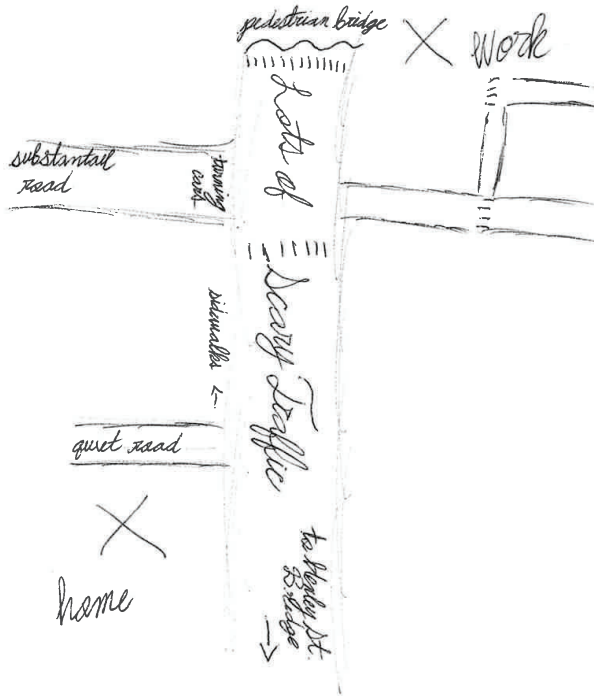 pedestrian bridge
work
Lots of
substantail
road
turning
cars
Scary Traffic
sidewalks
quiet road
home
to Henley St.
Bridge